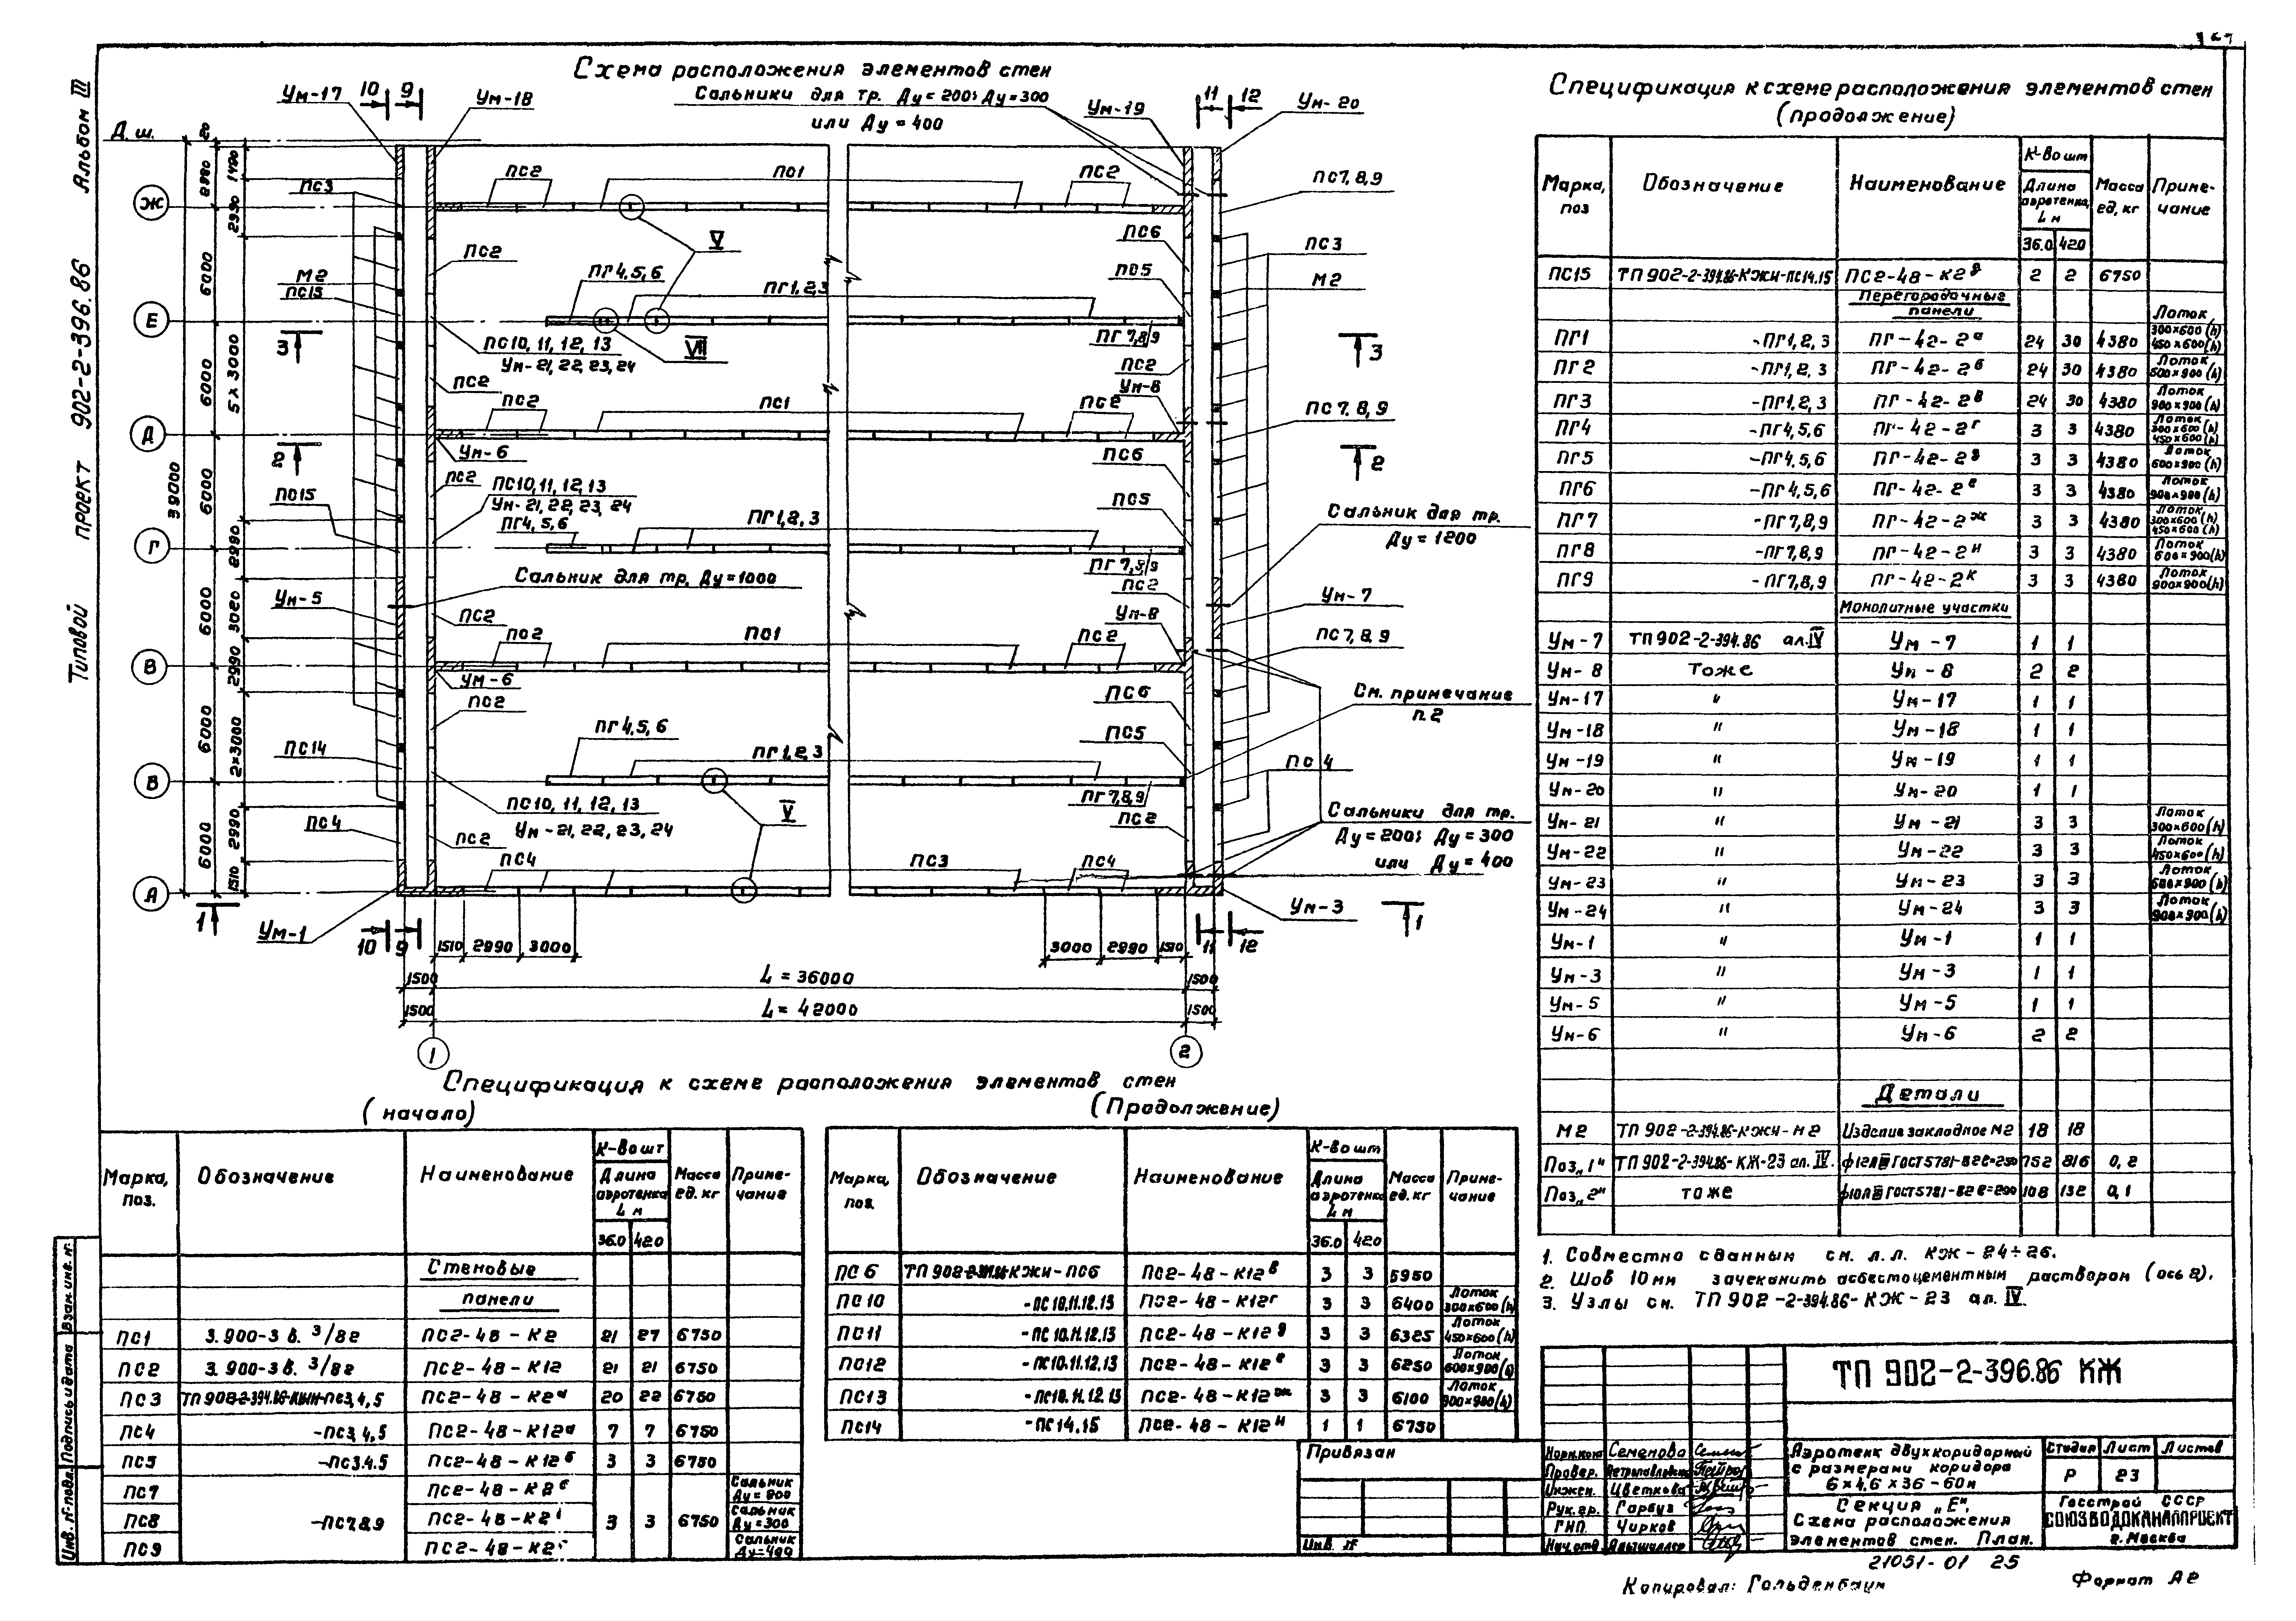 Альбом III
Типовой проект 902-2-396.86
Схема расположения элементов стен
Сальники для тр. Ду=200; Ду=300
или Ду=400
Ум-17
10
9
Ум-18
Ум-19
11
12
Ум-20
Д.ш.
Ж
Е
Д
Г
В
В
А
39000
20
2980
6000
6000
6000
6000
6000
6000
1490
2990
5×3000
2990
3020
2990
2×3000
2990
1510
ПС3
ПС2
ПС1
ПС2
ПС7,8,9
ПС2
V
ПС6
ПС3
М2
ПС15
ПГ4,5,6
ПГ1,2,3
ПС5
М2
3
ПС10,11,12,13
Ум-21,22,23,24
VII
ПГ7,8,9
ПС2
3
ПС2
ПС2
ПС1
Ум-8
ПС2
ПС7,8,9
2
Ум-6
ПС6
2
ПС2
ПС10,11,12,13
Ум-21,22,23,24
ПС15
ПГ4,5,6
ПГ1,2,3
ПС5
Сальник для тр.
Ду=1200
ПГ7,8,9
Сальник для тр. Ду=1000
ПС2
Ум-5
Ум-7
ПС2
ПС2
ПС1
Ум-8
ПС2
ПС7,8,9
Ум-6
ПС2
ПС6
См. примечание
п.2
ПС14
ПГ4,5,6
ПГ1,2,3
ПС5
ПС4
ПГ7,8,9
ПС10,11,12,13
Ум-21,22,23,24
V
ПС4
ПС2
ПС2
Сальники для тр.
Ду=200; Ду=300
или Ду=400
ПС4
ПС3
ПС4
1
Ум-1
Ум-3
1
10
9
1510
2990
3000
3000
2990
1510
11
12
1500
L=36000
1500
1500
L=42000
1500
1
2
Спецификация к схеме расположения элементов стен
(начало)
Марка, поз.
Обозначение
Наименование
К-во шт
Длина аэротенка L м
36.0
42.0
Масса ед. кг
Примечание
Стеновые
панели
ПС1 3.900-3 в. 3/82 ПС2-48-К2 21 27 6750
ПС2 3.900-3 в. 3/82 ПС2-48-К12 21 21 6750
ПС3 ТП902-2-394.86-КЖИ-ПС3,4,5 ПС2-48-К2а 20 22 6750
ПС4 -ПС3,4,5 ПС2-48-К12а 7 7 6750
ПС5 -ПС3.4.5 ПС2-48-К12б 3 3 6750
ПС7 Сальник Ду=200
ПС8 -ПС7,8,9 3 3 6750 Сальник Ду=300
ПС9 Сальник Ду=400
(Продолжение)
Марка, поз.
Обозначение
Наименование
К-во шт
Длина аэротенка L м
36.0
42.0
Масса ед. кг
Примечание
ПС6 ТП902-2-394.86-КЖИ-ПС6 ПС2-48-К12в 3 3 5950
ПС10 -ПС10.11.12.13 ПС2-48-К12г 3 3 6400 Лоток 300×600(h)
ПС11 -ПС10.11.12.13 ПС2-48-К12д 3 3 6325 Лоток 450×600(h)
ПС12 -ПС10.11.12.13 ПС2-48-К12е 3 3 6250 Лоток 600×900(h)
ПС13 -ПС10.11.12.13 ПС2-48-К12ж 3 3 6100 Лоток 900×900(h)
ПС14 -ПС14.15 ПС2-48-К12и 1 1 6750
Спецификация к схеме расположения элементов стен
(продолжение)
Марка, поз
Обозначение
Наименование
К-во шт
Длина аэротенка, L м
36.0
42.0
Масса ед, кг
Примечание
ПС15 ТП902-2-394.86-КЖИ-ПС14.15 ПС2-48-К2д 2 2 6750
Перегородочные
панели
ПГ1 -ПГ1,2,3 ПГ-42-2а 24 30 4380 Лоток 300×600(h) 450×600(h)
ПГ2 -ПГ1,2,3 ПГ-42-2б 24 30 4380 Лоток 600×900(h)
ПГ3 -ПГ1,2,3 ПГ-42-2в 24 30 4380 Лоток 900×900(h)
ПГ4 -ПГ4,5,6 ПГ-42-2г 3 3 4380 Лоток 300×600(h) 450×600(h)
ПГ5 -ПГ4,5,6 ПГ-42-2д 3 3 4380 Лоток 600×900(h)
ПГ6 -ПГ4,5,6 ПГ-42-2е 3 3 4380 Лоток 900×900(h)
ПГ7 -ПГ7,8,9 ПГ-42-2ж 3 3 4380 Лоток 300×600(h) 450×600(h)
ПГ8 -ПГ7,8,9 ПГ-42-2и 3 3 4380 Лоток 600×900(h)
ПГ9 -ПГ7,8,9 ПГ-42-2к 3 3 4380 Лоток 900×900(h)
Монолитные участки
Ум-7 ТП902-2-394.86 ал.IV Ум-7 1 1
Ум-8 Тоже Ум-8 2 2
Ум-17 " Ум-17 1 1
Ум-18 " Ум-18 1 1
Ум-19 " Ум-19 1 1
Ум-20 " Ум-20 1 1
Ум-21 " Ум-21 3 3 Лоток 300×600(h)
Ум-22 " Ум-22 3 3 Лоток 450×600(h)
Ум-23 " Ум-23 3 3 Лоток 600×900(h)
Ум-24 " Ум-24 3 3 Лоток 900×900(h)
Ум-1 " Ум-1 1 1
Ум-3 " Ум-3 1 1
Ум-5 " Ум-5 1 1
Ум-6 " Ум-6 2 2
Детали
М2 ТП902-2-394.86-КЖИ-М2 Изделие закладное М2 18 18
Поз„1" ТП902-2-394.86-КЖ-23 ал.IV. ф12АIII ГОСТ5781-82 ℓ=250 752 816 0,2
Поз„2" тоже ф10АIII ГОСТ5781-82 ℓ=200 108 132 0,1
1. Совместно с данным см. л.л. КЖ-24÷26.
2. Шов 10мм зачеканить асбестоцементным раствором (ось 2).
3. Узлы см. ТП902-2-394.86-КЖ-23 ал.IV.
ТП 902-2-396.86 КЖ
Привязан
Инв. №
Норм.кон Семенова
Провер.
Инжен. Цветкова
Рук.гр. Гарбуз
ГИП. Чирков
Нач.отд
Аэротенк двухкоридорный
с размерами коридора
6×4,6×36-60м
Секция „Е".
Схема расположения
элементов стен. План.
Стадия Лист Листов
Р 23
Госстрой СССР
СОЮЗВОДОКАНАЛПРОЕКТ
г.Москва
Взам.инв.№
Подпись и дата
Инв.№подл.
21051-01 25
Копировал: Гольденбаум
Формат А2